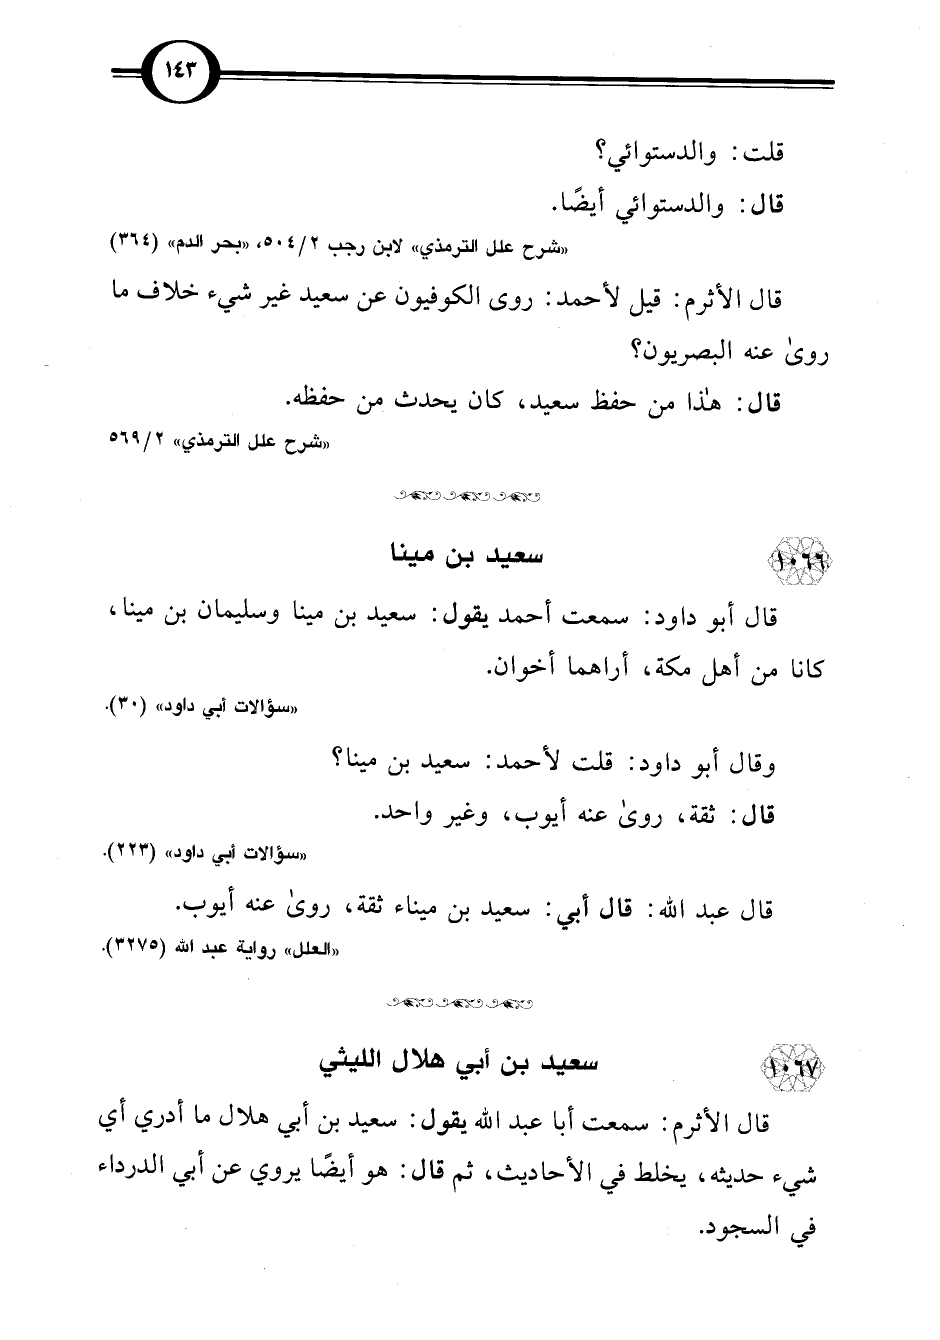 ١٤٣
قلت: والدستوائي؟
قال: والدستوائي أيضًا.
«شرح علل الترمذي» لابن رجب ٥٠٤/٢، «بحر الدم» (٣٦٤)
قال الأثرم: قيل لأحمد: روى الكوفيون عن سعيد غير شيء خلاف ما
روىٰ عنه البصريون؟
قال: هٰذا من حفظ سعيد، كان يحدث من حفظه.
«شرح علل الترمذي» ٥٦٩/٢
١٠٦٦ سعيد بن مينا
قال أبو داود: سمعت أحمد يقول: سعيد بن مينا وسليمان بن مينا،
كانا من أهل مكة، أراهما أخوان.
«سؤالات أبي داود» (٣٠).
وقال أبو داود: قلت لأحمد: سعيد بن مينا؟
قال: ثقة، روىٰ عنه أيوب، وغير واحد.
«سؤالات أبي داود» (٢٢٣).
قال عبد الله: قال أبي: سعيد بن ميناء ثقة، روىٰ عنه أيوب.
«العلل» رواية عبد الله (٣٢٧٥).
١٠٦٧ سعيد بن أبي هلال الليثي
قال الأثرم: سمعت أبا عبد الله يقول: سعيد بن أبي هلال ما أدري أي
شيء حديثه، يخلط في الأحاديث، ثم قال: هو أيضًا يروي عن أبي الدرداء
في السجود.